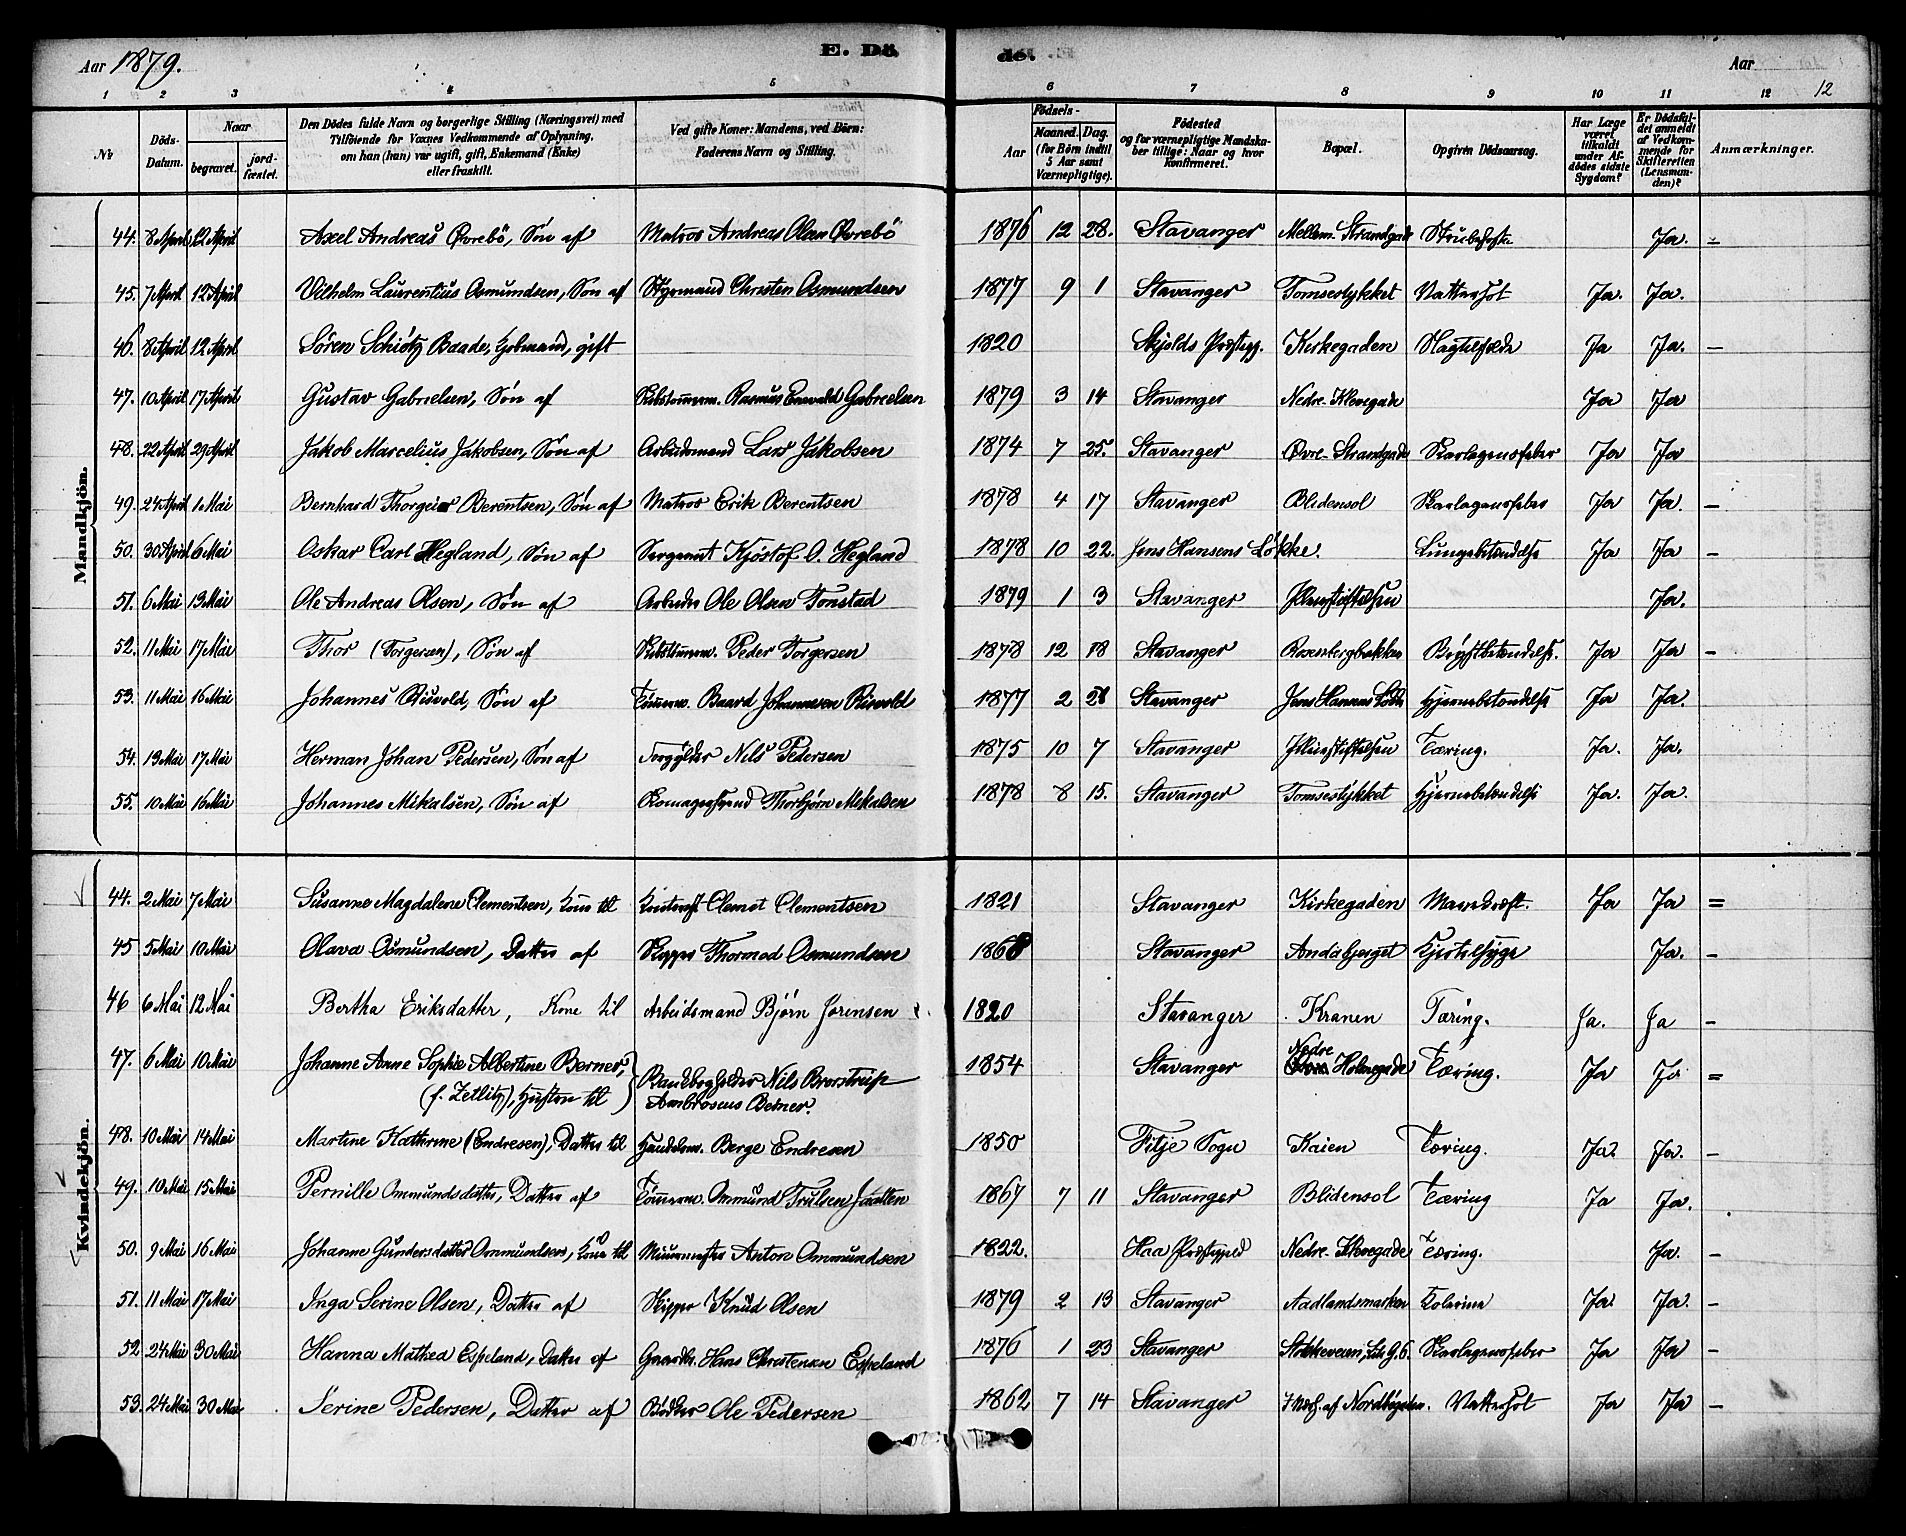 Aar 1879.
E. Dö
de.
Aar
12
1 2 3 4 5 6 7 8 9 10 11 12
No
Döds-Datum.
Naar begravet. jordfæstet.
Den Dödes fulde Navn og borgerlige Stilling (Næringsvei) med Tilföiende for Voxnes Vedkommende af Oplysning, om han (hun) var ugift, gift, Enkemand (Enke) eller fraskilt.
Ved gifte Koner: Mandens, ved Börn: Faderens Navn og Stilling.
Födsels-
Aar Maaned. Dag. (for Börn indtil 5 Aar samt Værnepligtige).
Födested og for værnepligtige Mandskaber tillige: Naar og hvor konfirmeret.
Bopæl.
Opgiven Dödsaarsag.
Har Læge været tilkaldt under Afdödes sidste Sygdom?
Er Dödsfaldet anmeldt af Vedkommende for Skifteretten (Lensmanden)?
Anmærkninger.
Mandkjön.
44. 8 April 12 April Axel Andreas Øvrebö, Sön af Matros Andreas Olsen Øvrebö 1876 12 28. Stavanger Mellem Strandgade Ja. -
45. 7 April 12 April Vilhelm Laurentius Osmundsen, Sön af Styrmand Christen Osmundsen 1877 9 1 Stavanger Tomsestykket Vattersot Ja. Ja.
46. 8 April 12 April Sören Schiötz Baade, gift 1820 Skjolds Præstegj. Kirkegaden Slagtilfælde Ja Ja. -
47. 10 April 17 April Gustav Gabrielsen, Sön af Rasmus Enevald Gabrielsen 1879 3 14 Stavanger Nedre Klevegade Ja Ja
48. 22 April 29 April Jakob Marcelius Jakobsen, Sön af Arbeidsmand Lars Jakobsen 1874 7 25. Stavanger Øvre Strandgade Skarlagensfeber Ja Ja
49. 24 April 1 Mai Bernhard Thorgeir Berentsen, Sön af Matros Erik Berentsen 1878 4 17 Stavanger Blidensol Skarlagensfeber Ja Ja. -
50. 30 April 6 Mai Oskar Carl Hegland, Sön af Sergeant Kjöstof O. Hegland 1878 10 22. Jens Hansens Løkke. Lungebetændelse Ja Ja -
51. 6 Mai 13 Mai Ole Andreas Olsen, Sön af Arbeider Ole Olsen Tonstad 1879 1 3 Stavanger Ja.
52. 11 Mai 17 Mai Thor (Torgersen), Sön af Peder Torgersen 1878 12 18 Stavanger Rosenbergbakken Brystbetændelse. Ja Ja -
53. 11 Mai 16 Mai Johannes Risvold, Sön af Tömmerm. Baard Johannesen Risvold 1877 2 28 Stavanger Jens Hansens Løkke Hjernebetændelse Ja Ja.
54. 13 Mai 17 Mai Herman Johan Pedersen, Sön af Forgylder Nils Pedersen 1875 10 7 Stavanger Tæring. Ja. Ja.
55. 10 Mai 16 Mai Johannes Mikalsen, Sön af Skomagersvend Thorbjørn Mikalsen 1878 8 15. Stavanger Tomsestykket Hjernebetændelse Ja. Ja.
Kvindekjön.
44. 2 Mai 7 Mai Susanne Magdalene Clementsen, Kone til Clemet Clementsen 1821 Stavanger Kirkegaden Mavekræft. Ja Ja =
45 5 Mai 10 Mai Olava Osmundsen, Datter af Skipper Thormod Osmundsen 1868 Stavanger Andasbjerget Kjertelsyge Ja. -
46 6 Mai 12 Mai Bertha Eriksdatter, Kone til Arbeidsmand Bjørn Jørensen 1820 Stavanger Kranen Tæring. Ja. Ja -
47. 6 Mai 10 Mai Johanne Anne Sophie Albertine Berner, (f. Zetlitz), Hustru til Bankbogholder Nils Brorstrup Ambrosius Berner. 1854 Stavanger Nedre Holmegade Tæring. Ja Ja =
48. 10 Mai 14 Mai Martine Kathrine (Endresen), Datter til Handelsm. Berge Endresen 1850 Fitje Sogn Kaien Tæring. Ja. Ja. -
49. 10 Mai 15 Mai Pernille Ommundsdatter, Datter af Tömmerm. Ommund Trulsen Jaatten 1867 7 11 Stavanger Blidensol Tæring Ja Ja.
50. 9 Mai 16 Mai Johanne Gundersdatter Ommundsen, Kone til Muurmester Anton Ommundsen 1822. Haa Præstegjeld Nedre Klevegade Tæring. Ja. -
51. 11 Mai 17 Mai Inga Serine Olsen, Datter af Skipper Knud Olsen 1879 2 13 Stavanger Aadlandsmarken Kolerine Ja. Ja. -
52 24 Mai 30 Mai Hanna Mathea Espeland, Datter af Gaardbr. Hans Christensen Espeland 1876 1 23 Stavanger Stokkeveien, Litr. G. 6. Skarlagensfeber Ja Ja -
53. 24 Mai 30 Mai Serine Pedersen, Datter af Bødker Ole Pedersen 1862 7 14 Stavanger af Nordbøgaden. Vattersot Ja Ja -